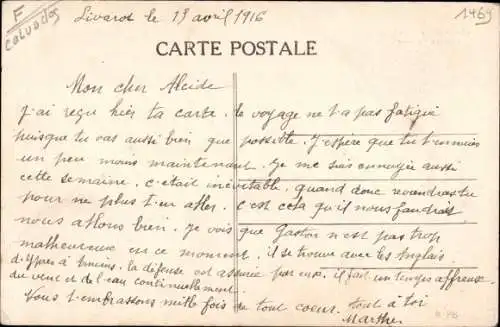 F
CALVADOS
Livarot le 13 avril 1916
1469
CARTE POSTALE
Mon cher Alcide
J'ai reçu hier ta carte. le voyage ne t'a pas fatigué
puisque tu vas aussi bien que possible. J'espère que tu t'ennuies
un peu moins maintenant. Je me suis ennuyée aussi
cette semaine. c'était inévitable. quand donc reviendras tu
pour ne plus t'en aller. C'est cela qu'il nous faudrait
nous allons bien. Je vois que Gaston n'est pas trop
malheureux en ce moment. il se trouve avec les Anglais
d'Ypres à . la défense est assurée par eux. il fait un temps affreux
du vent et de l'eau continuellement.
Nous t'embrassons mille fois de tout coeur. tout à toi
Marthe